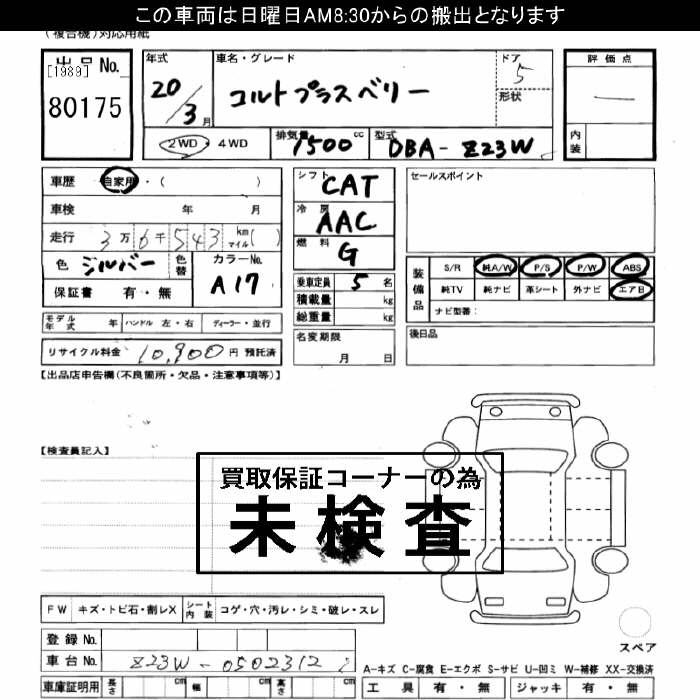 この車両は日曜日AM8:30からの搬出となります
(複合機)対応用紙
出品No.
[1989]
80175
年式
20/3月
車名・グレード
コルトプラスベリー
ドア
5
形状
評価点
—
内装
2WD・4WD
排気量 1500 cc
型式 DBA-Z23W
車歴 自家用・( )
車検 年 月
走行 3万6千543 km マイル( )
色 シルバー 色替
カラーNo. A17
保証書 有・無
シフト CAT
冷房 AAC
燃料 G
乗車定員 5 名
積載量 kg
総重量 kg
名変期限
月 日
セールスポイント
装備品
S/R 純A/W P/S P/W ABS
純TV 純ナビ 革シート 外ナビ エアB
ナビ型番:
後日品
モデル年式 年 ハンドル 左・右 ディーラー・並行
リサイクル料金 10,900 円 預託済
【出品店申告欄(不良箇所・欠品・注意事項等)】
【検査員記入】
買取保証コーナーの為
未検査
FW キズ・トビ石・割レX シート内装 コゲ・穴・汚レ・シミ・破レ・スレ
登録No.
車台No. Z23W-0502312
スペア
A-キズ C-腐食 E-エクボ S-サビ U-凹ミ W-補修 XX-交換済
車庫証明用 長さ cm 幅 cm 高さ cm
工具 有・無 ジャッキ 有・無